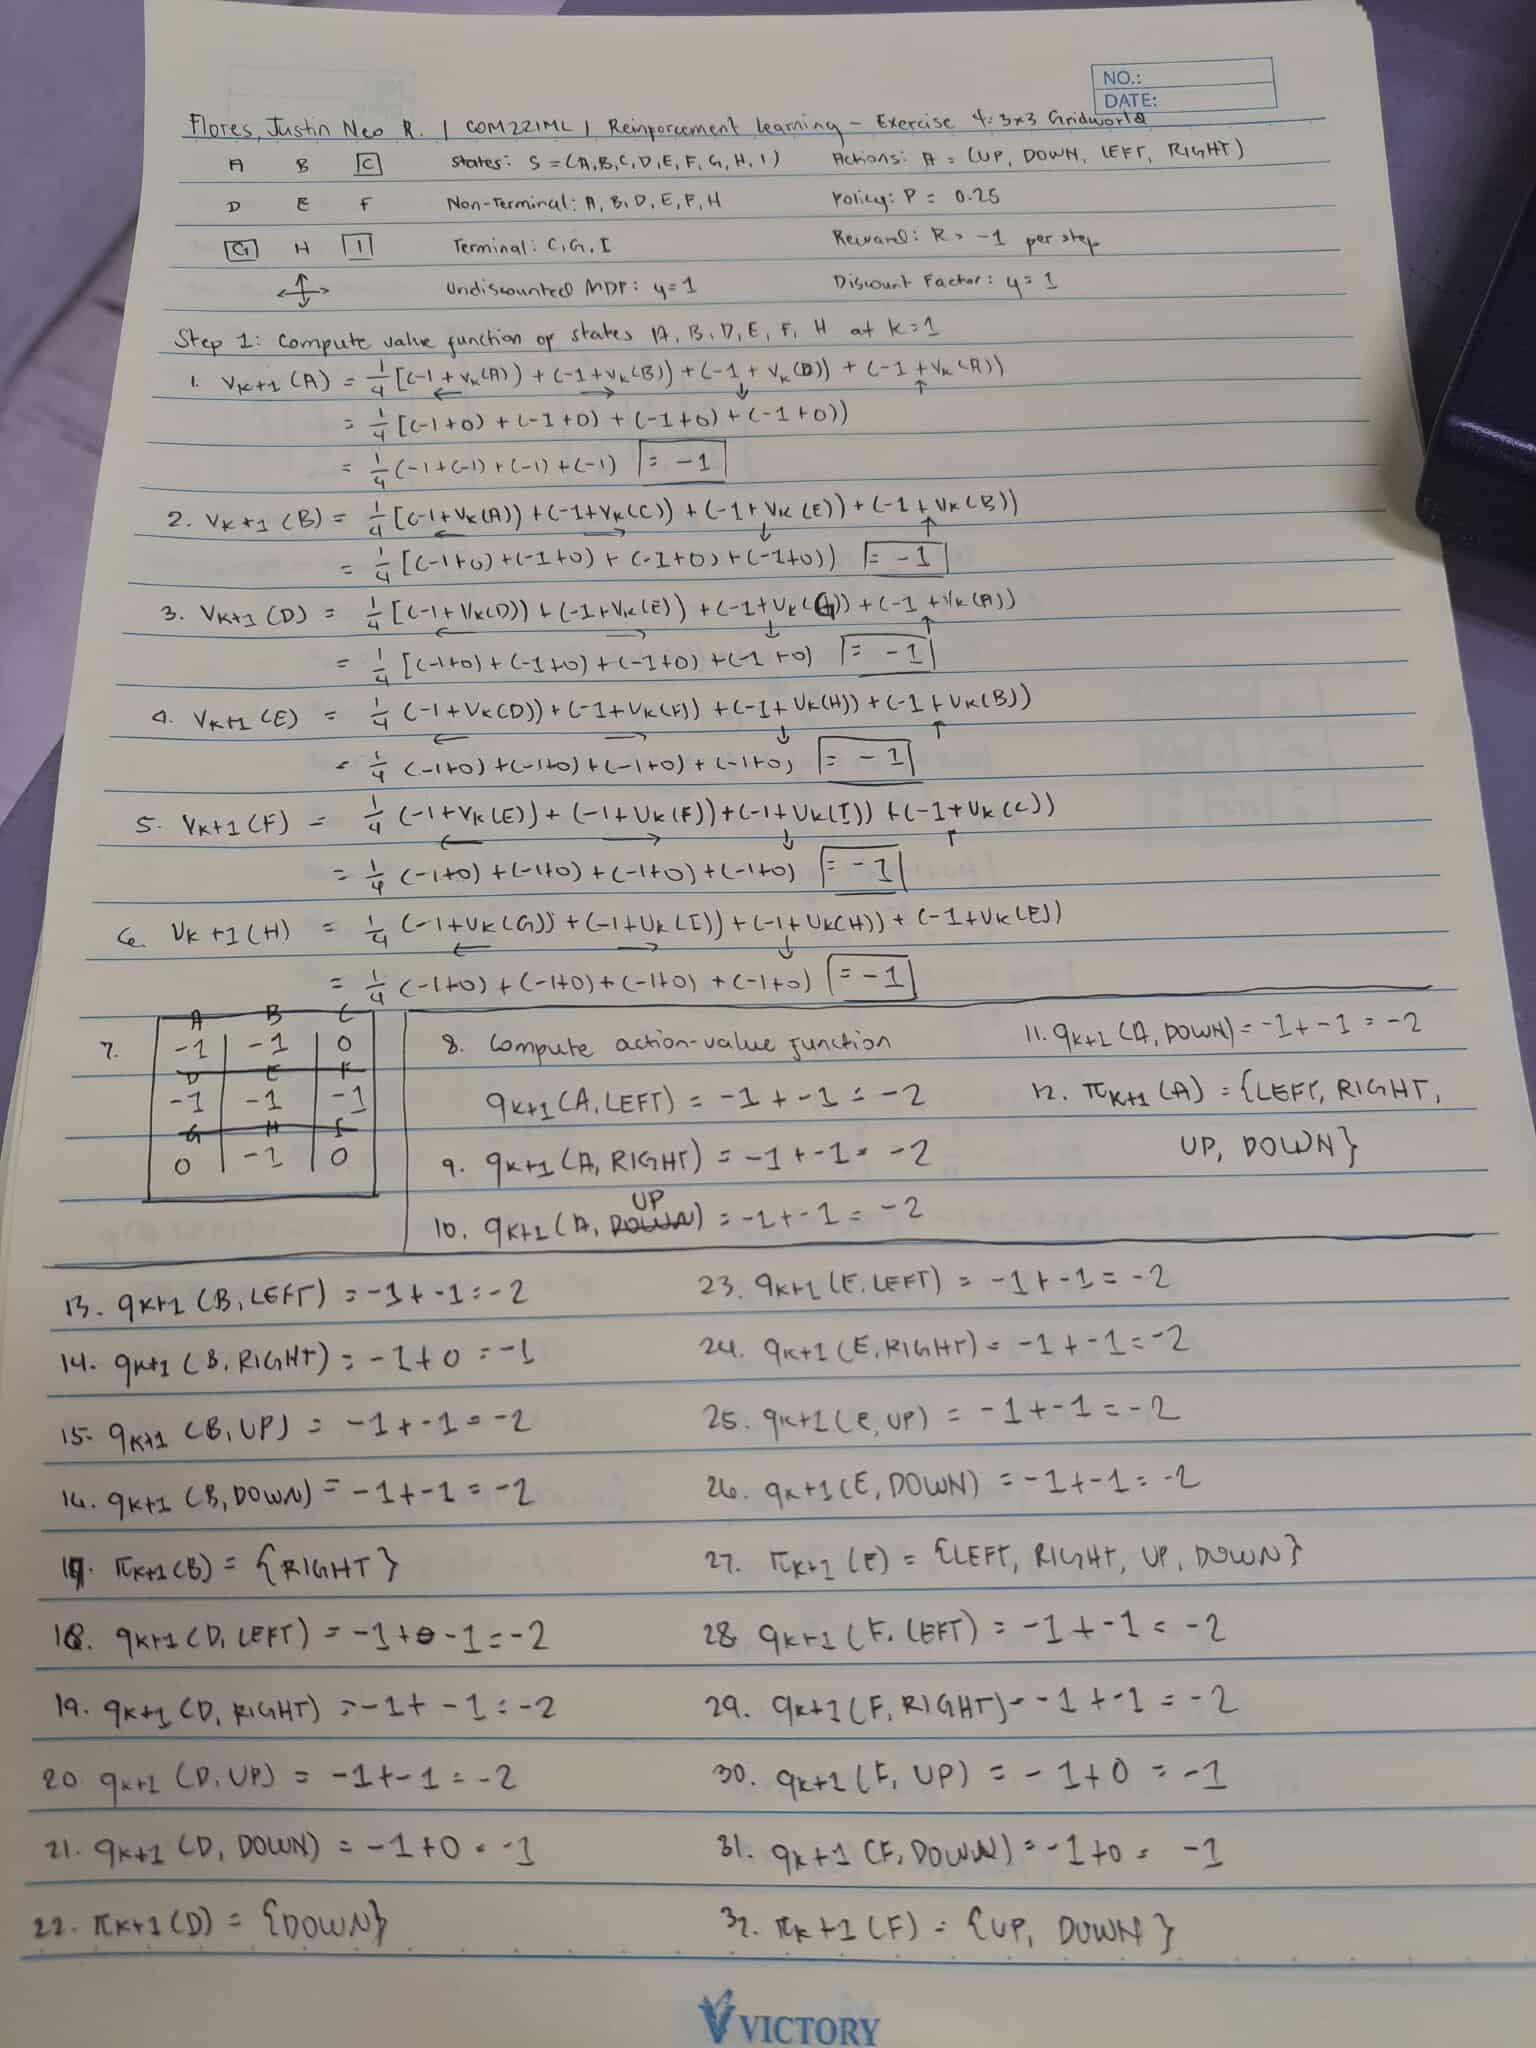 NO.:
DATE:
Flores, Justin Neo R. | COM221ML | Reinforcement learning - Exercise 4: 3x3 Gridworld
A B C States: S = (A,B,C,D,E,F,G,H,I) Actions: A = (UP, DOWN, LEFT, RIGHT)
D E F Non-Terminal: A, B, D, E, F, H Policy: P = 0.25
G H I Terminal: C, G, I Reward: R = -1 per step
Undiscounted MDP: y=1 Discount Factor: y=1
Step 1: Compute value function of states A, B, D, E, F, H at k=1
1. Vk+1 (A) = 1/4 [(-1+Vk(A)) + (-1+Vk(B)) + (-1+Vk(D)) + (-1+Vk(A))
← → ↓ ↑
= 1/4 [(-1+0) + (-1+0) + (-1+0) + (-1+0))
= 1/4 (-1+(-1)+(-1)+(-1) = -1
2. Vk+1 (B) = 1/4 [(-1+Vk(A)) + (-1+Vk(C)) + (-1+Vk(E)) + (-1+Vk(B))
← → ↓ ↑
= 1/4 [(-1+0)+(-1+0) + (-1+0)+(-1+0)) = -1
3. Vk+1 (D) = 1/4 [(-1+Vk(D)) + (-1+Vk(E)) + (-1+Vk(G)) + (-1+Vk(A))
← → ↓ ↑
= 1/4 [(-1+0)+(-1+0)+(-1+0)+(-1+0) = -1
4. Vk+1 (E) = 1/4 (-1+Vk(D)) + (-1+Vk(F)) + (-1+Vk(H)) + (-1+Vk(B))
← → ↓ ↑
= 1/4 (-1+0)+(-1+0)+(-1+0)+(-1+0) = -1
5. Vk+1 (F) = 1/4 (-1+Vk(E)) + (-1+Vk(F)) + (-1+Vk(I)) + (-1+Vk(C))
← → ↓ ↑
= 1/4 (-1+0)+(-1+0)+(-1+0)+(-1+0) = -1
6. Vk+1 (H) = 1/4 (-1+Vk(G)) + (-1+Vk(I)) + (-1+Vk(H)) + (-1+Vk(E))
← → ↓
= 1/4 (-1+0)+(-1+0)+(-1+0)+(-1+0) = -1
7.
A B C
-1 -1 0
D E F
-1 -1 -1
G H I
0 -1 0
8. Compute action-value function
qk+1 (A, LEFT) = -1 + -1 = -2
9. qk+1 (A, RIGHT) = -1 + -1 = -2
UP
10. qk+1 (A, DOWN) = -1 + -1 = -2
11. qk+1 (A, DOWN) = -1 + -1 = -2
12. πk+1 (A) = {LEFT, RIGHT,
UP, DOWN}
13. qk+1 (B, LEFT) = -1 + -1 = -2
14. qk+1 (B, RIGHT) = -1+0 = -1
15. qk+1 (B, UP) = -1+-1 = -2
16. qk+1 (B, DOWN) = -1+-1 = -2
17. πk+1 (B) = {RIGHT}
18. qk+1 (D, LEFT) = -1+-1 = -2
19. qk+1 (D, RIGHT) = -1+ -1 = -2
20. qk+1 (D, UP) = -1+-1 = -2
21. qk+1 (D, DOWN) = -1+0 = -1
22. πk+1 (D) = {DOWN}
23. qk+1 (E, LEFT) = -1+-1 = -2
24. qk+1 (E, RIGHT) = -1+-1 = -2
25. qk+1 (E, UP) = -1+-1 = -2
26. qk+1 (E, DOWN) = -1+-1 = -2
27. πk+1 (E) = {LEFT, RIGHT, UP, DOWN}
28 qk+1 (F, LEFT) = -1+-1 = -2
29. qk+1 (F, RIGHT) = -1+-1 = -2
30. qk+1 (F, UP) = -1+0 = -1
31. qk+1 (F, DOWN) = -1+0 = -1
32. πk+1 (F) = {UP, DOWN}
VICTORY